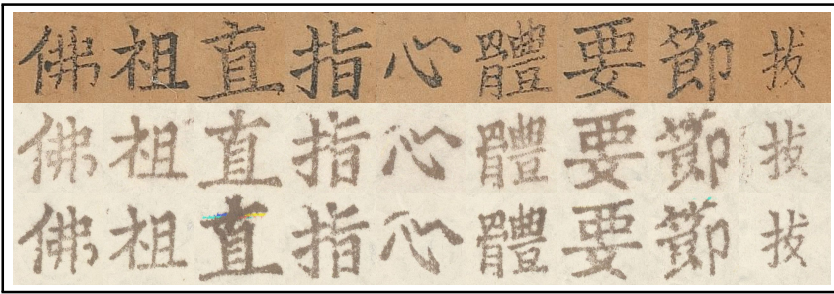 佛祖直指心體要節抜
佛祖直指心體要節抜
佛祖直指心體要節抜